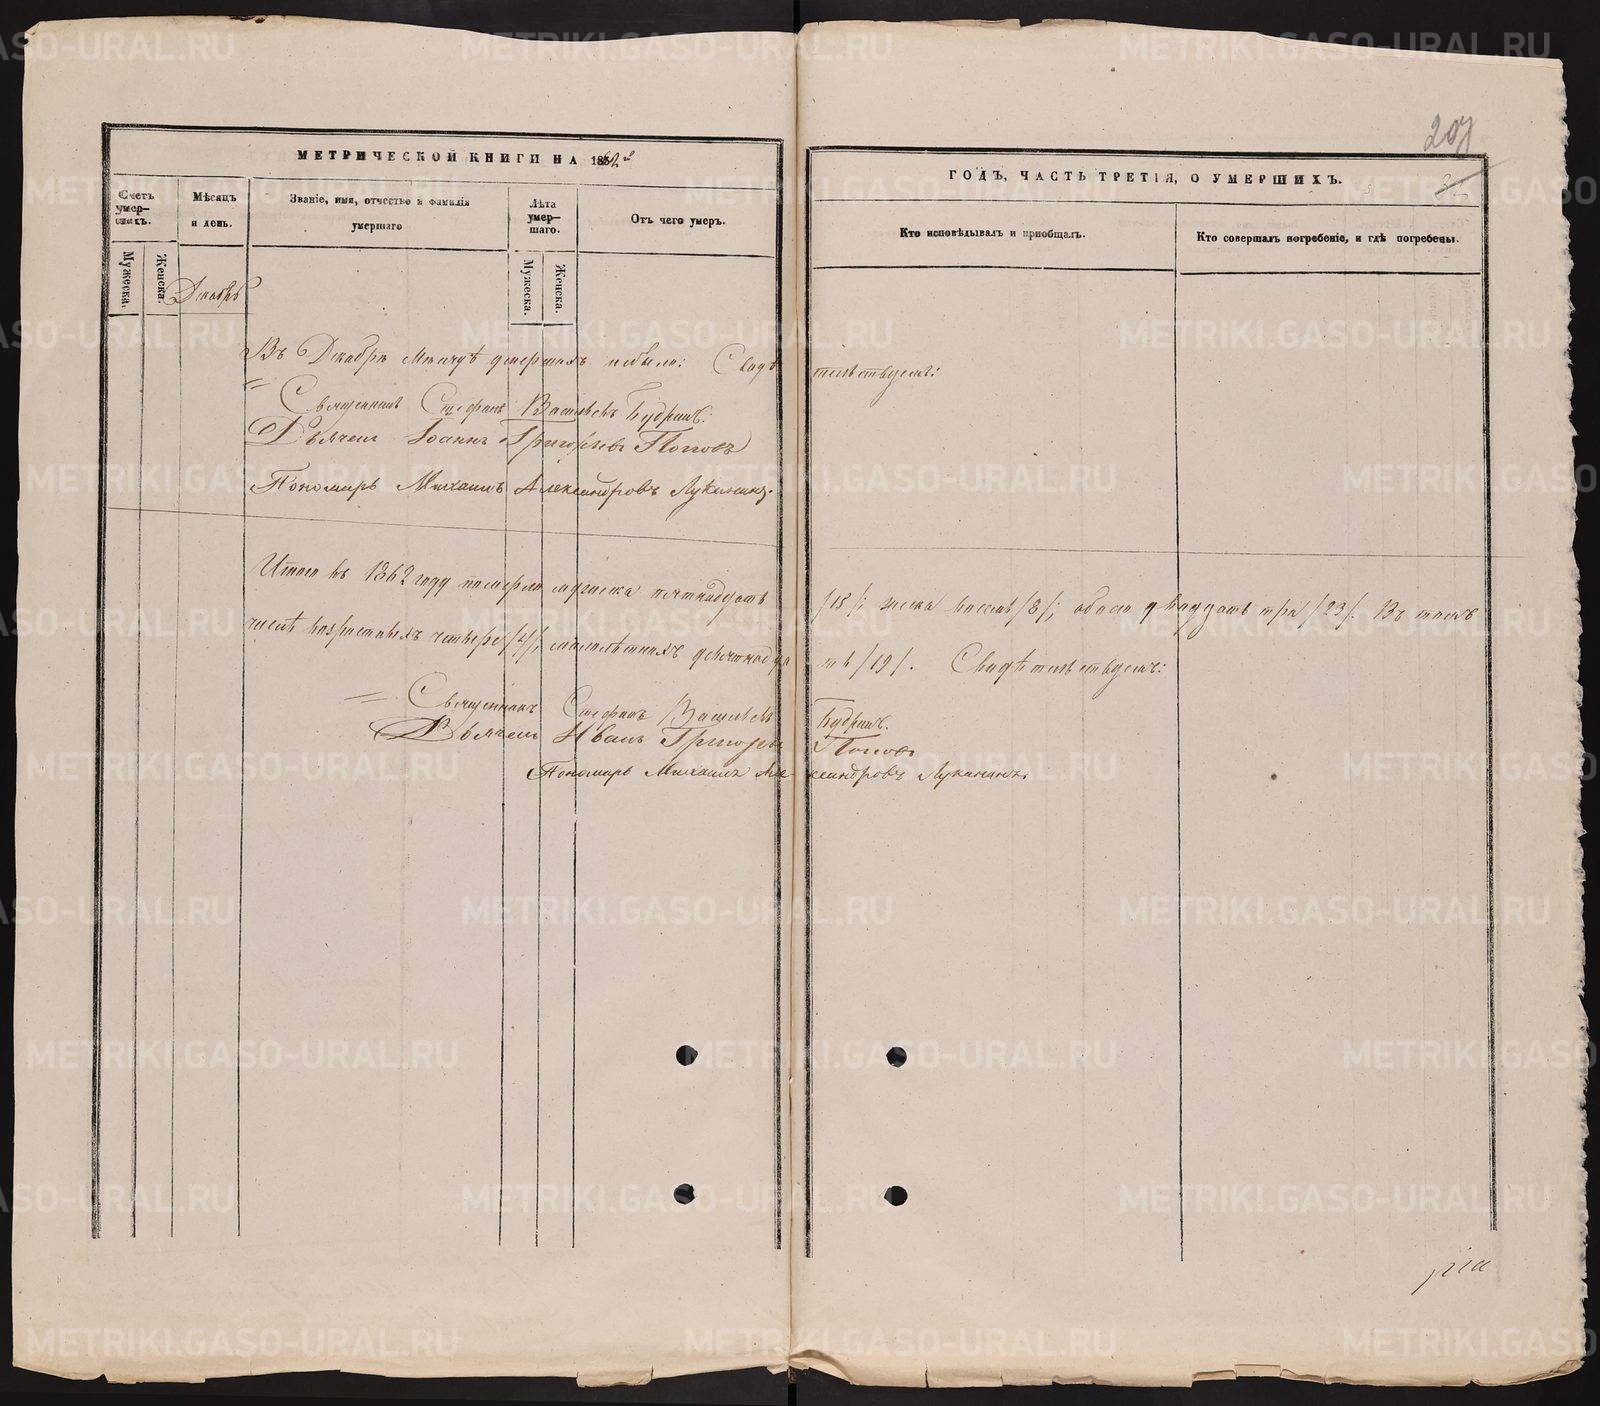 МЕТРИЧЕСКОЙ КНИГИ НА 1862й
ГОДЪ, ЧАСТЬ ТРЕТІЯ, О УМЕРШИХЪ.
207
Счетъ умер-шихъ.
Мѣсяцъ и день.
Званіе, имя, отчество и фамилія умершаго
Лѣта умер-шаго.
Отъ чего умеръ.
Кто исповѣдывалъ и пріобщалъ.
Кто совершалъ погребеніе, и гдѣ погребены.
Мужеска.
Женска.
Мужеска.
Женска.
Декабрь
Въ Декабрѣ мѣсяцѣ умершихъ небыло: Свидѣтельствуемъ:
Священникъ Стефанъ Васильевъ Будринъ.
Дьячекъ Іоаннъ Григорьевъ Поповъ
Пономарь Михаилъ Александровъ Луканинъ.
Итого въ 1862 году померло мужеска пятнадцать /15/; женска восемь /8/; обоего двадцать три /23/. Въ томъ
числѣ возрастныхъ четверо /4/, малолѣтнихъ девятнадцать /19/. Свидѣтельствуемъ:
Священникъ Стефанъ Васильевъ Будринъ.
Дьячекъ Иванъ Григорьевъ Поповъ
Пономарь Михаилъ Александровъ Луканинъ.
METRIKI.GASO-URAL.RU